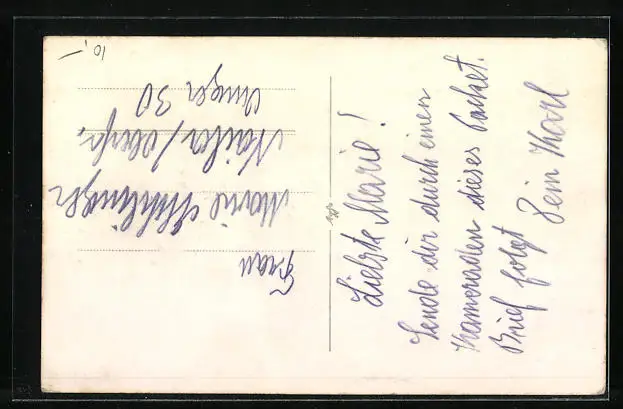 Liebste Marie!
Sende dir durch einen
Kameraden dieses Packet.
Brief folgt Dein Karl
Frau
Marie
Naila / Oberfr.
30
10,-